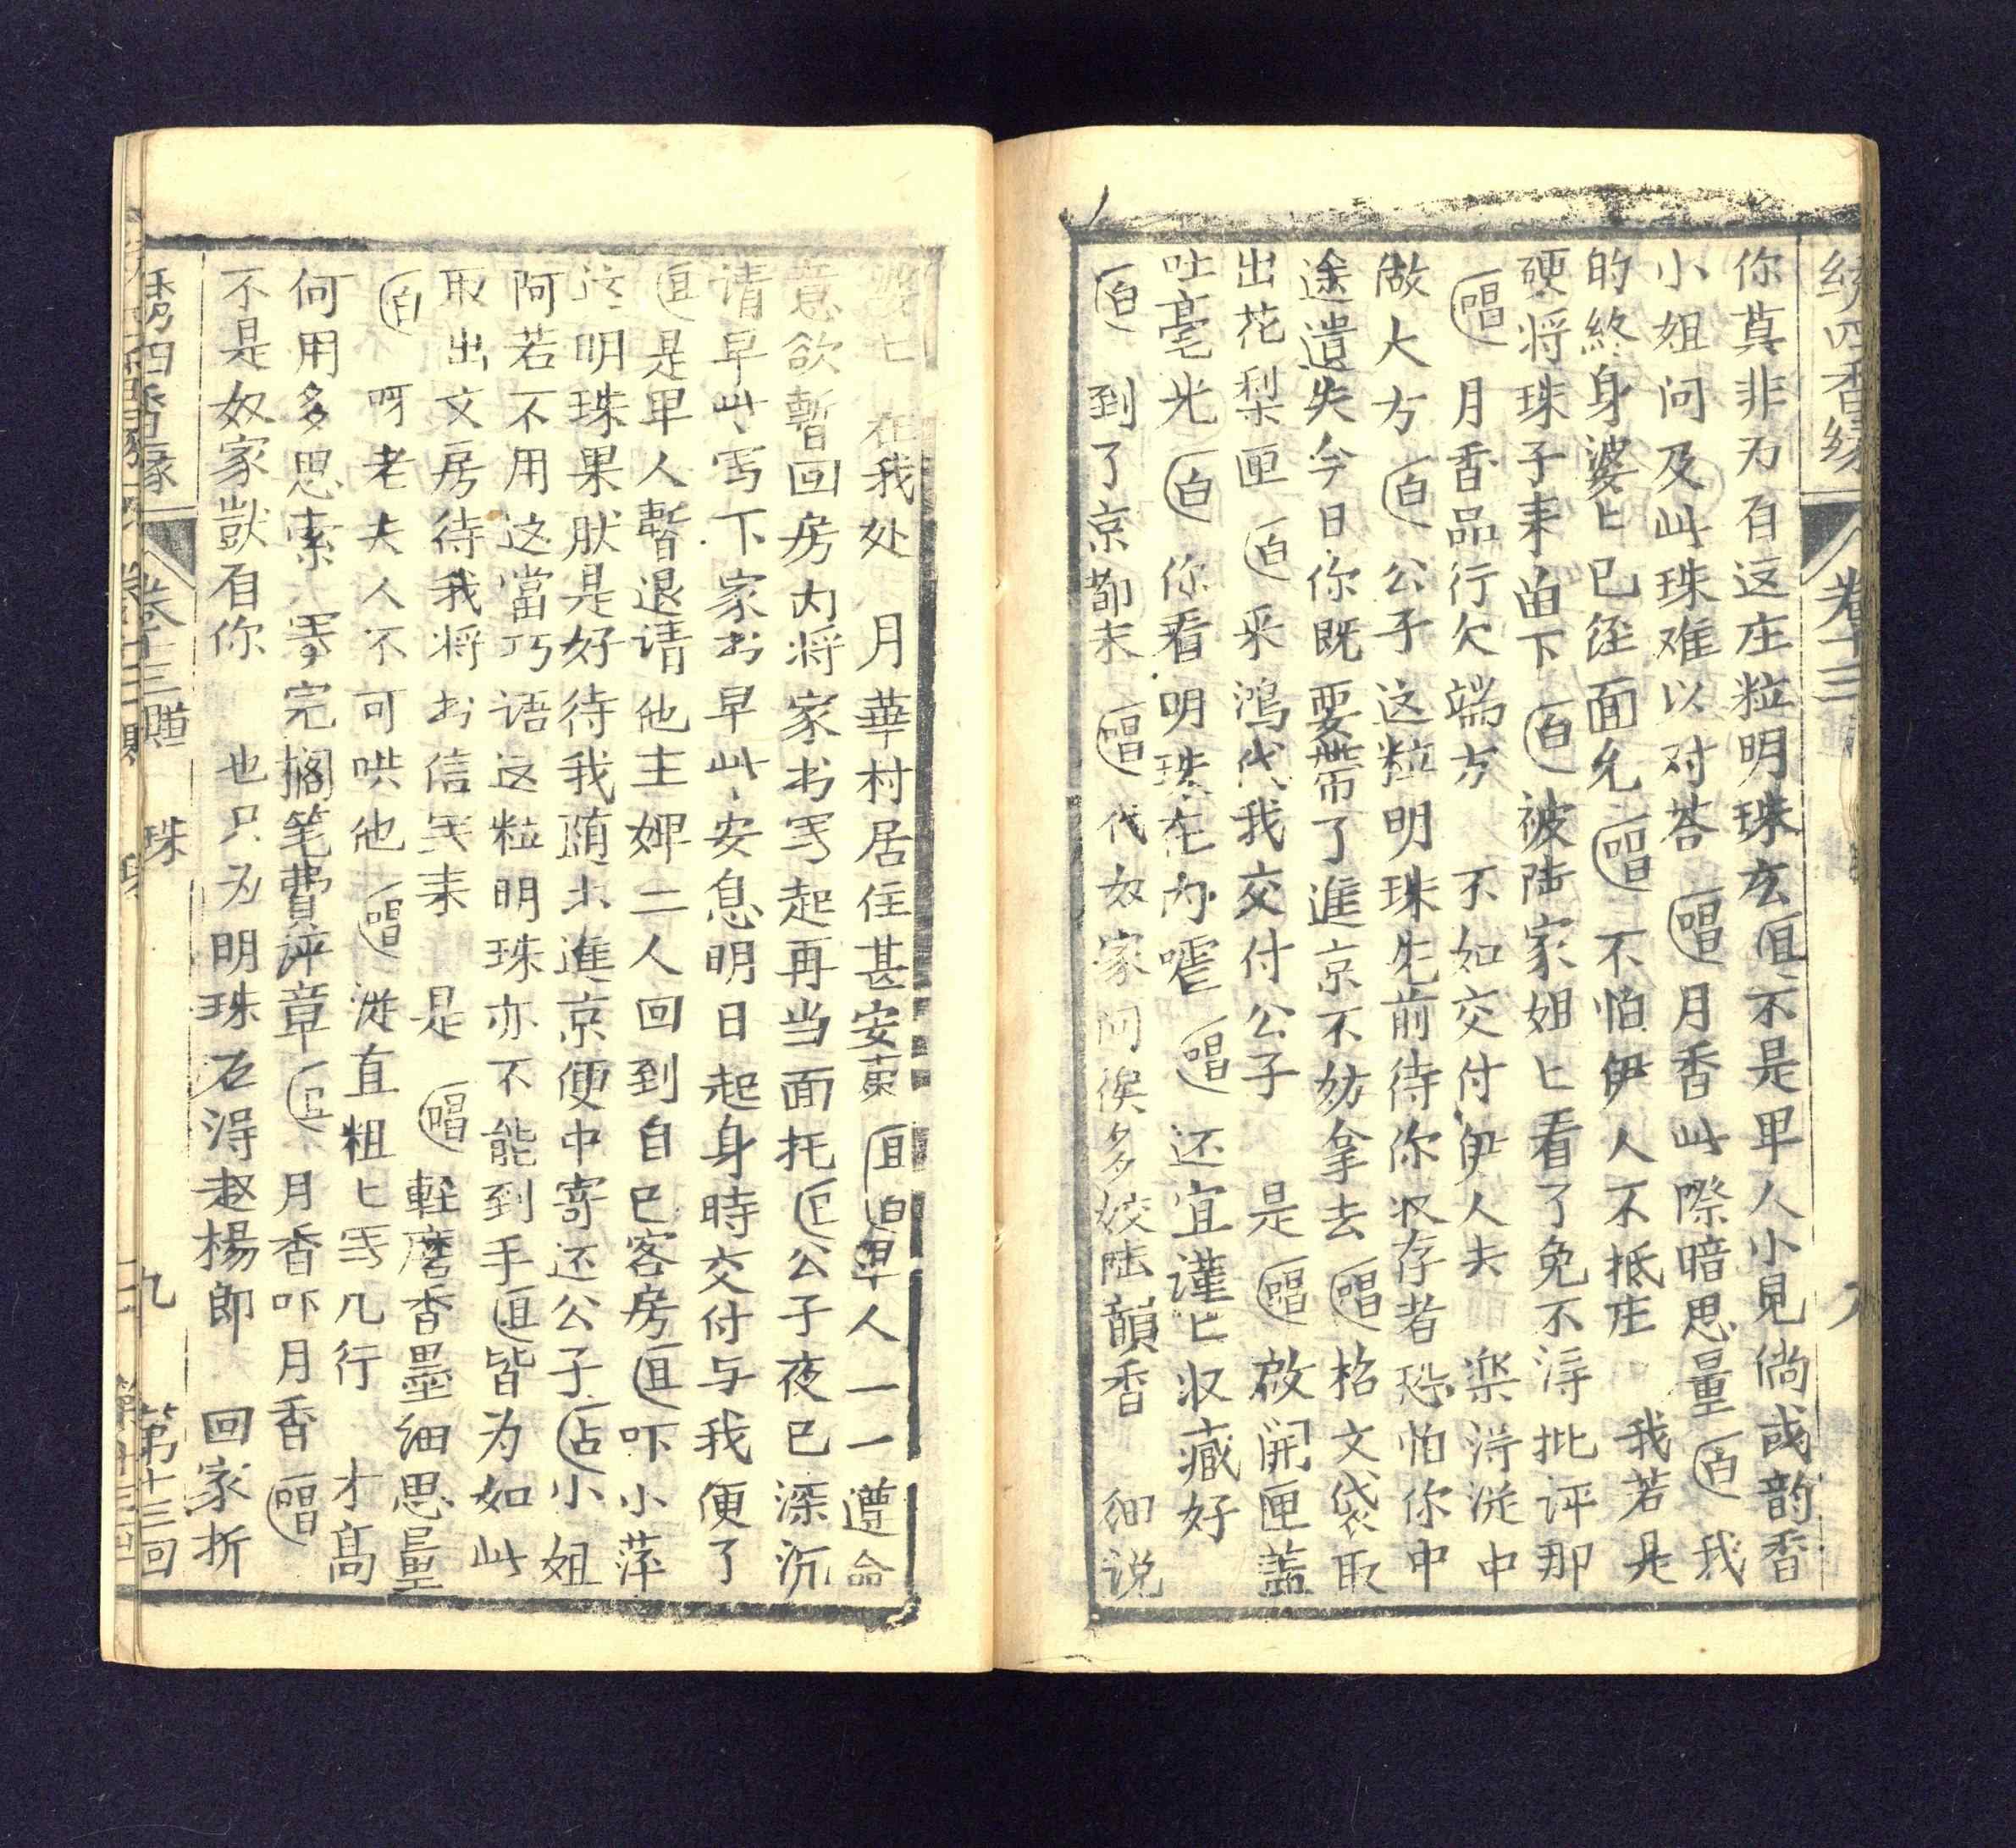 绣四香缘 卷十三
你莫非为有这庄粒明珠玄 不是早人小見倘或韵香
小姐问及此珠难以对荅 唱 月香此際暗思量 白 我
的終身婆匕已 面允 唱 不怕伊人不抵庄 我若是
硬将珠子来留下 白 被陆家姐匕看了免不淂批评那
唱 月香品行欠端方 不如交付伊人去 楽淂 中
做大方 白 公子这粒明珠先前待你收存者恐怕你中
途遺失今日你既要帶了進京不妨拿去 唱 文袋取
出花梨匣 白 采鴻代我交付公子 是 唱 啟開匣蓋
吐毫光 白 你看明珠在内 唱 还宜謹匕収藏好
白 到了京都末 唱 代奴家问候多姣陆韻香 细说
在我处 月華村居住甚安 早人一一遵命
意欲暫回房内将家书写起再当面托 公子夜已深沉
请早此写下家书早此安息明日起身時交付与我便了
是早人暫退请他主婢二人回到自已客房 吓小萍
这明珠果肰是好待我 進京便中寄还公子 占 小姐
阿若不用这當巧语这粒明珠亦不能到手 皆为如此
取出文房待我将书信写来 是 唱 軽磨香墨細思量
白 呵老夫人不可哄他 唱 直粗匕写几行 才髙
何用多思索 写完搁笔費評章 月香吓月香 唱
不是奴家獃有你 也只为明珠在淂赵楊郎 回家折
綉四香缘 卷十三 贈 珠 九 第十三回